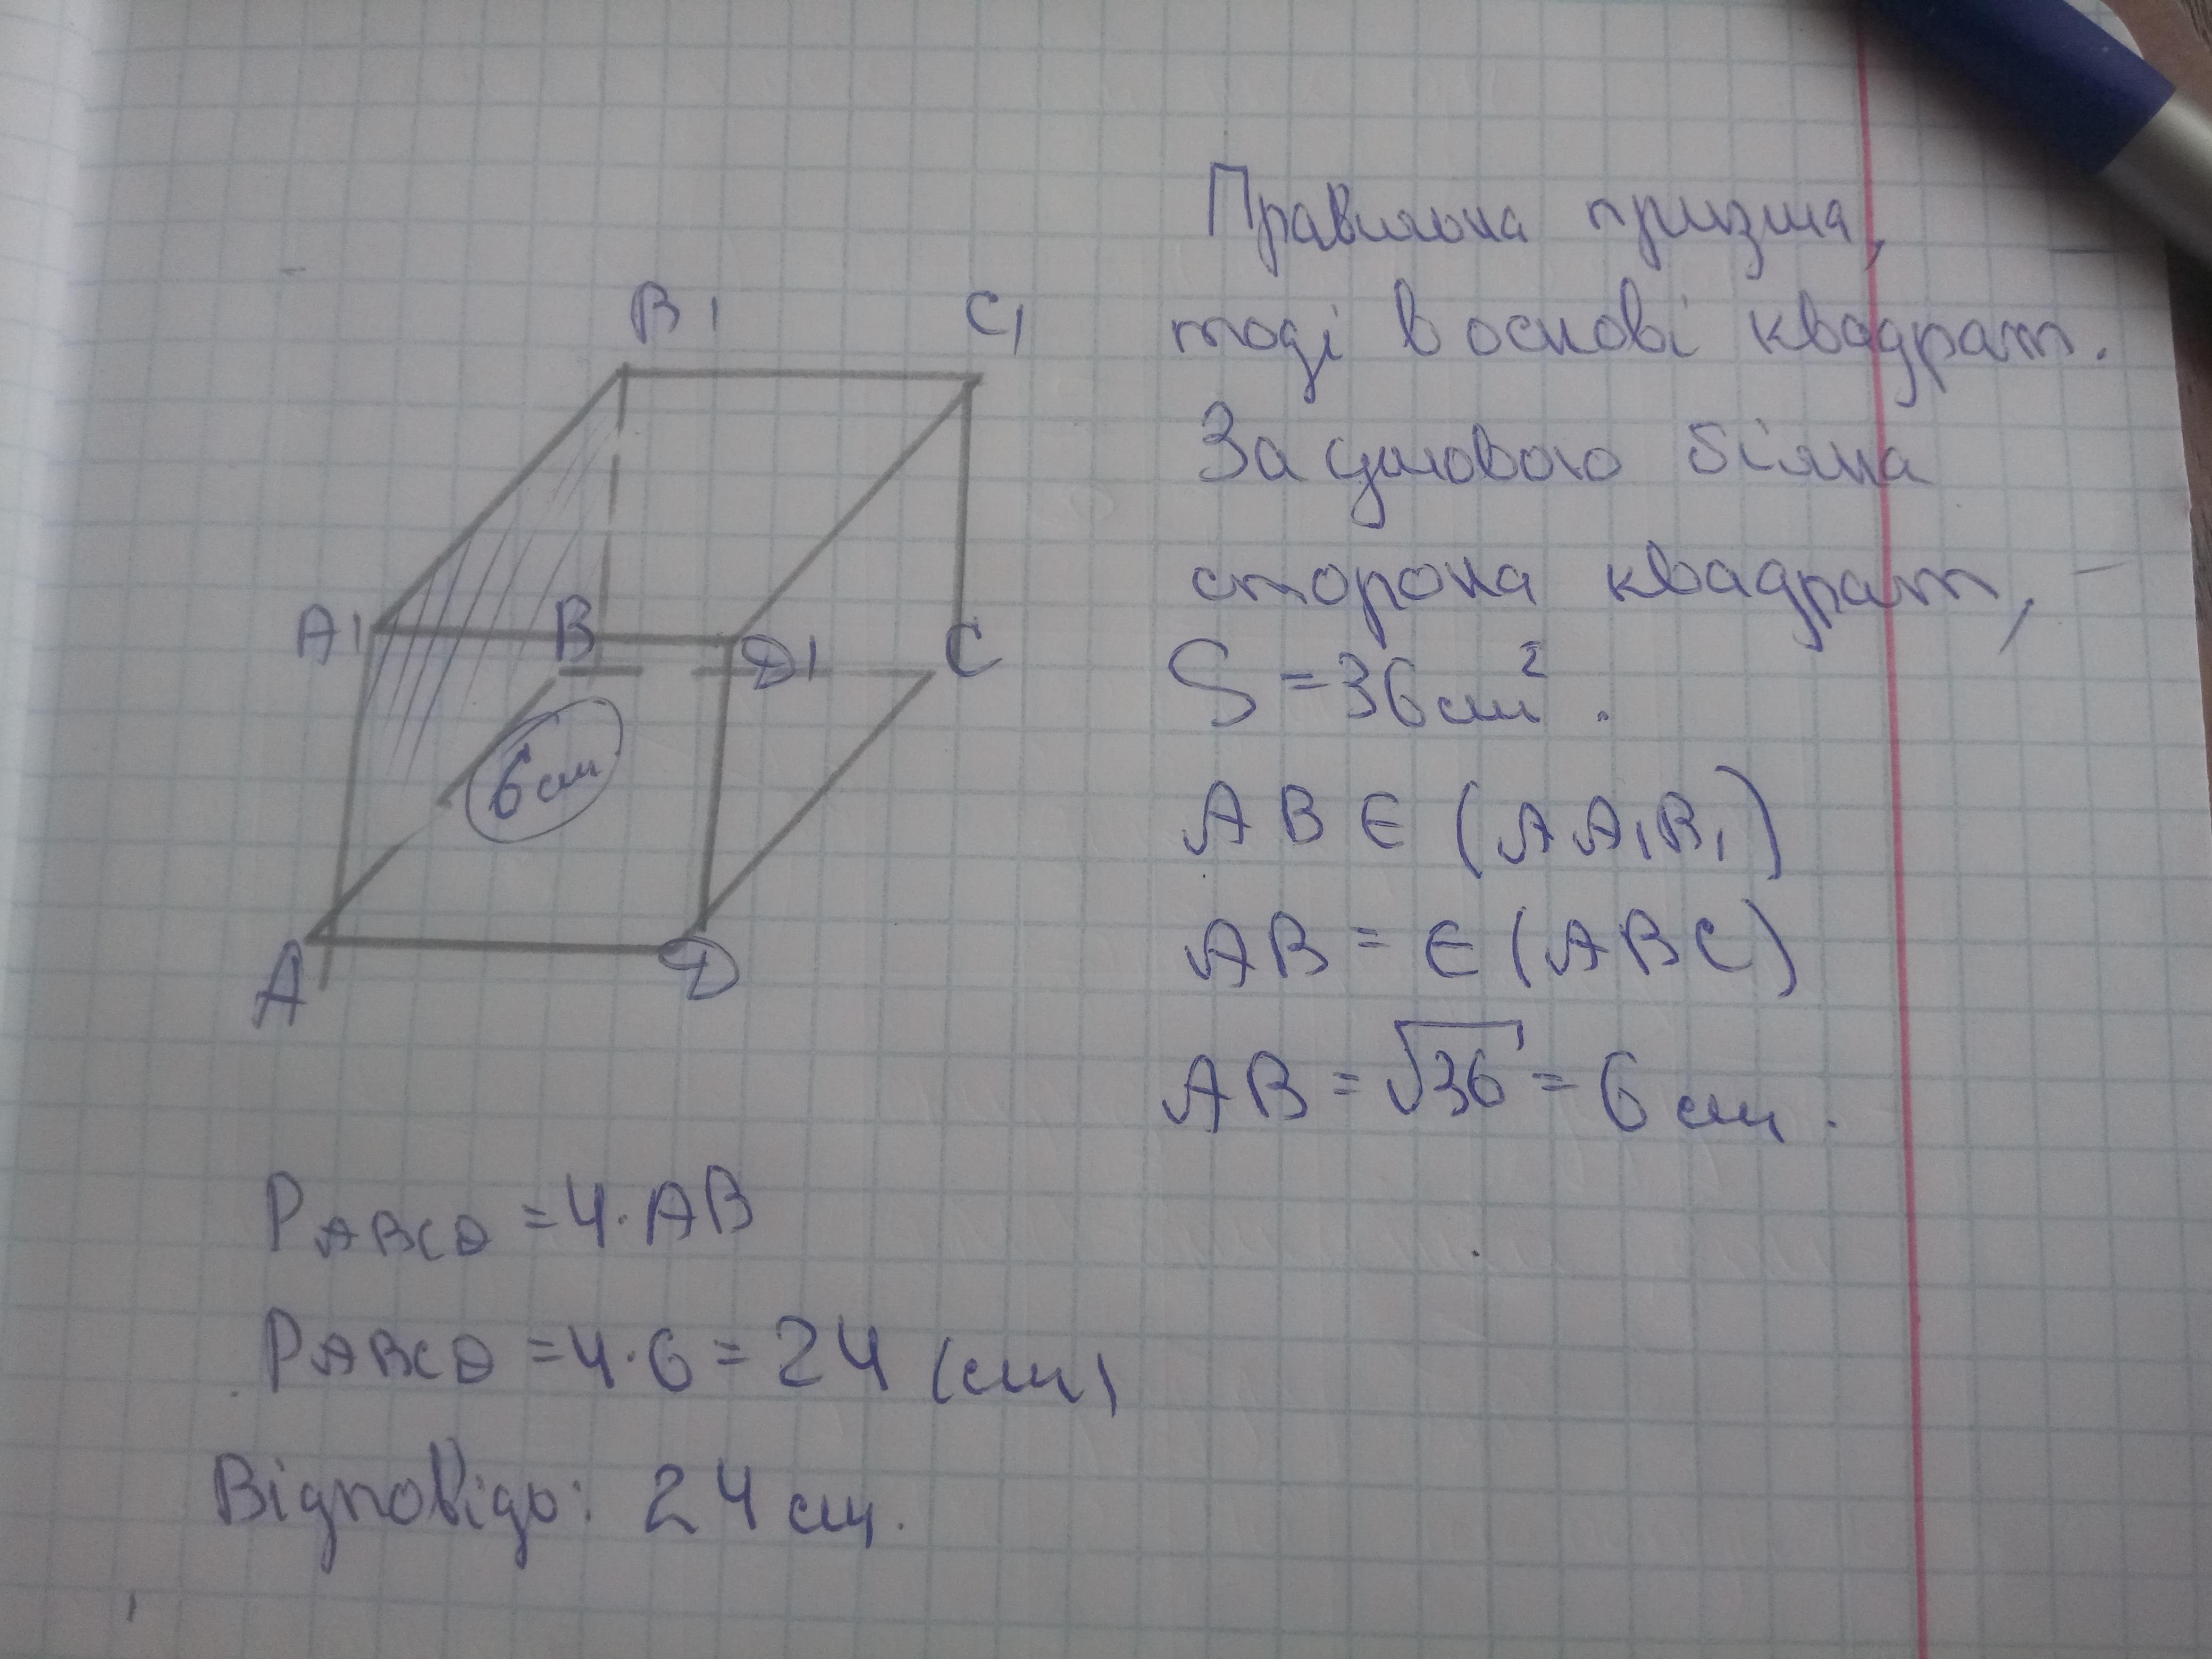 B1
C1
A1
B
D1
C
6 см
A
D
Правильна призма,
тоді в основі квадрат.
За умовою бічна
сторона квадрат,
S = 36 см².
AB ∈ (AA₁B₁)
AB = ∈ (ABC)
AB = √36 = 6 см.
PABCD = 4·AB
PABCD = 4·6 = 24 (см)
Відповідь: 24 см.